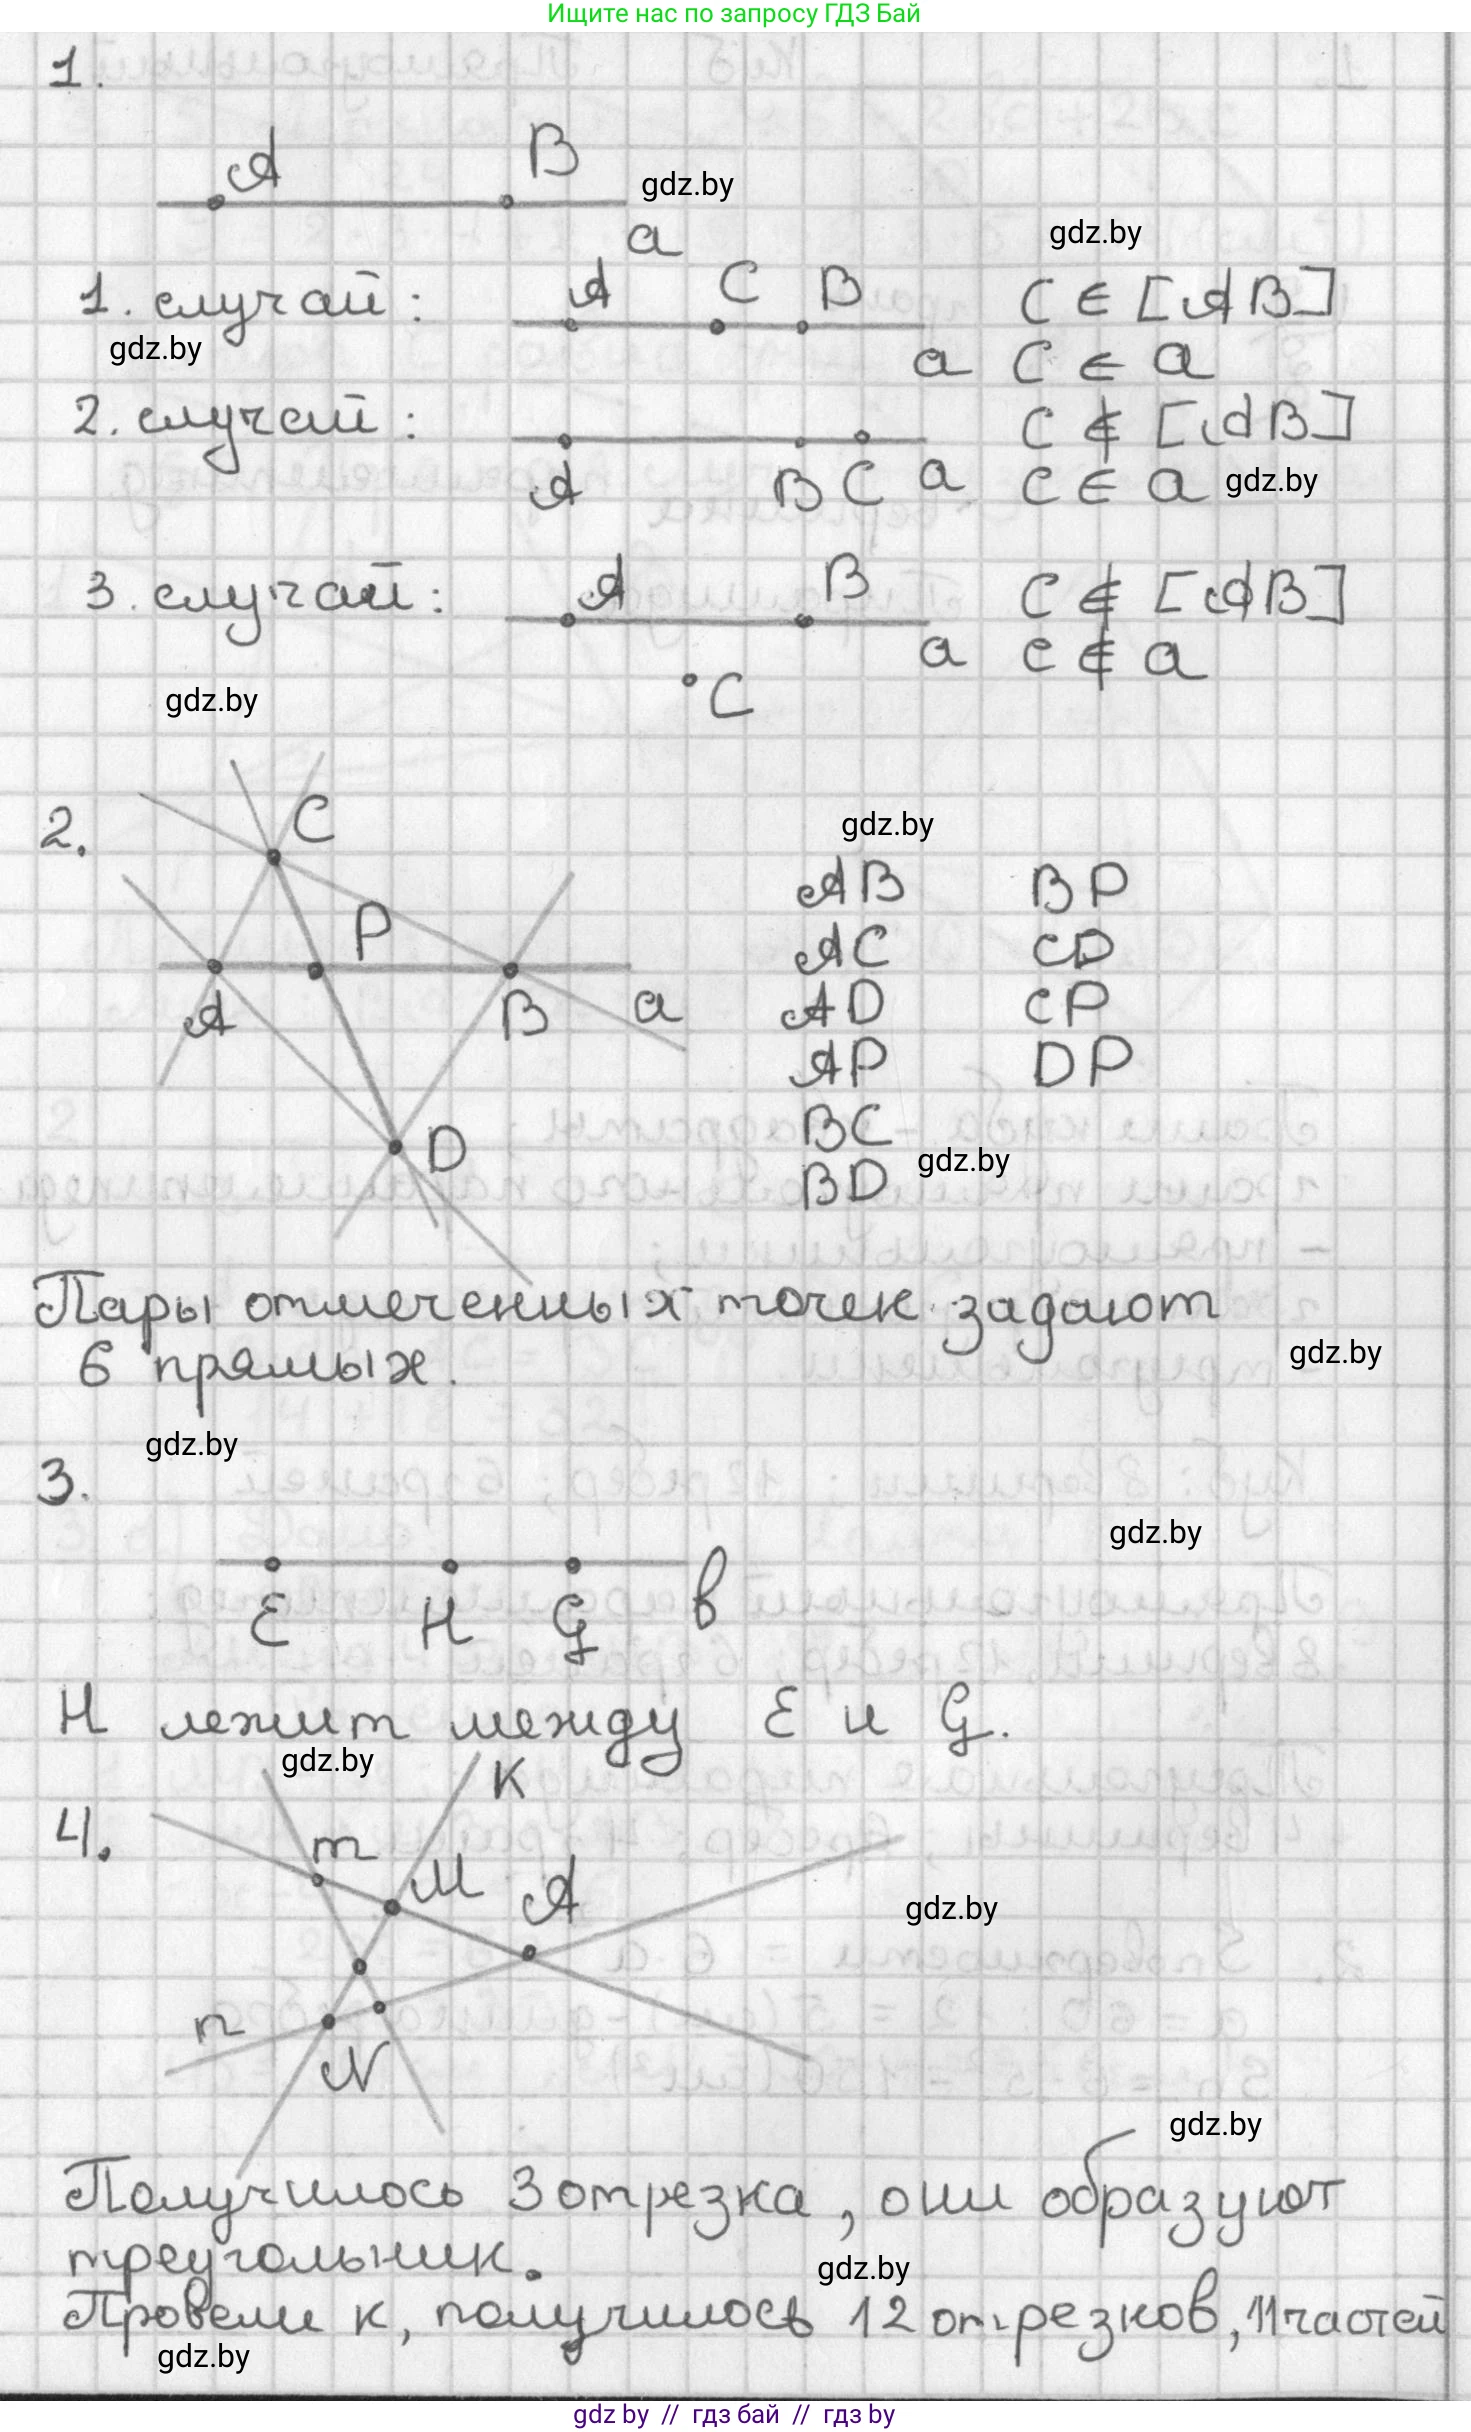 Ищите нас по запросу ГДЗ Бай
1.
A B
gdz.by
a
gdz.by
1. случай: A C B C ∈ [AB]
gdz.by
a C ∈ a
2. случай: C ∉ [AB]
A B C a C ∈ a gdz.by
3. случай: A B C ∉ [AB]
a C ∉ a
gdz.by
C
2.
C
gdz.by
P
A B a
D
AB BP
AC CD
AD CP
AP DP
BC
gdz.by
BD
Пары отмеченных точек задают
gdz.by
6 прямых.
gdz.by
3.
gdz.by
E H G в
H лежит между E и G.
gdz.by
K
4.
m M A
gdz.by
n
N
gdz.by
Получилось 3 отрезка, они образуют
треугольник.
gdz.by
Провели к, получилось 12 отрезков, 11 частей
gdz.by
gdz by // гдз бай // гдз by